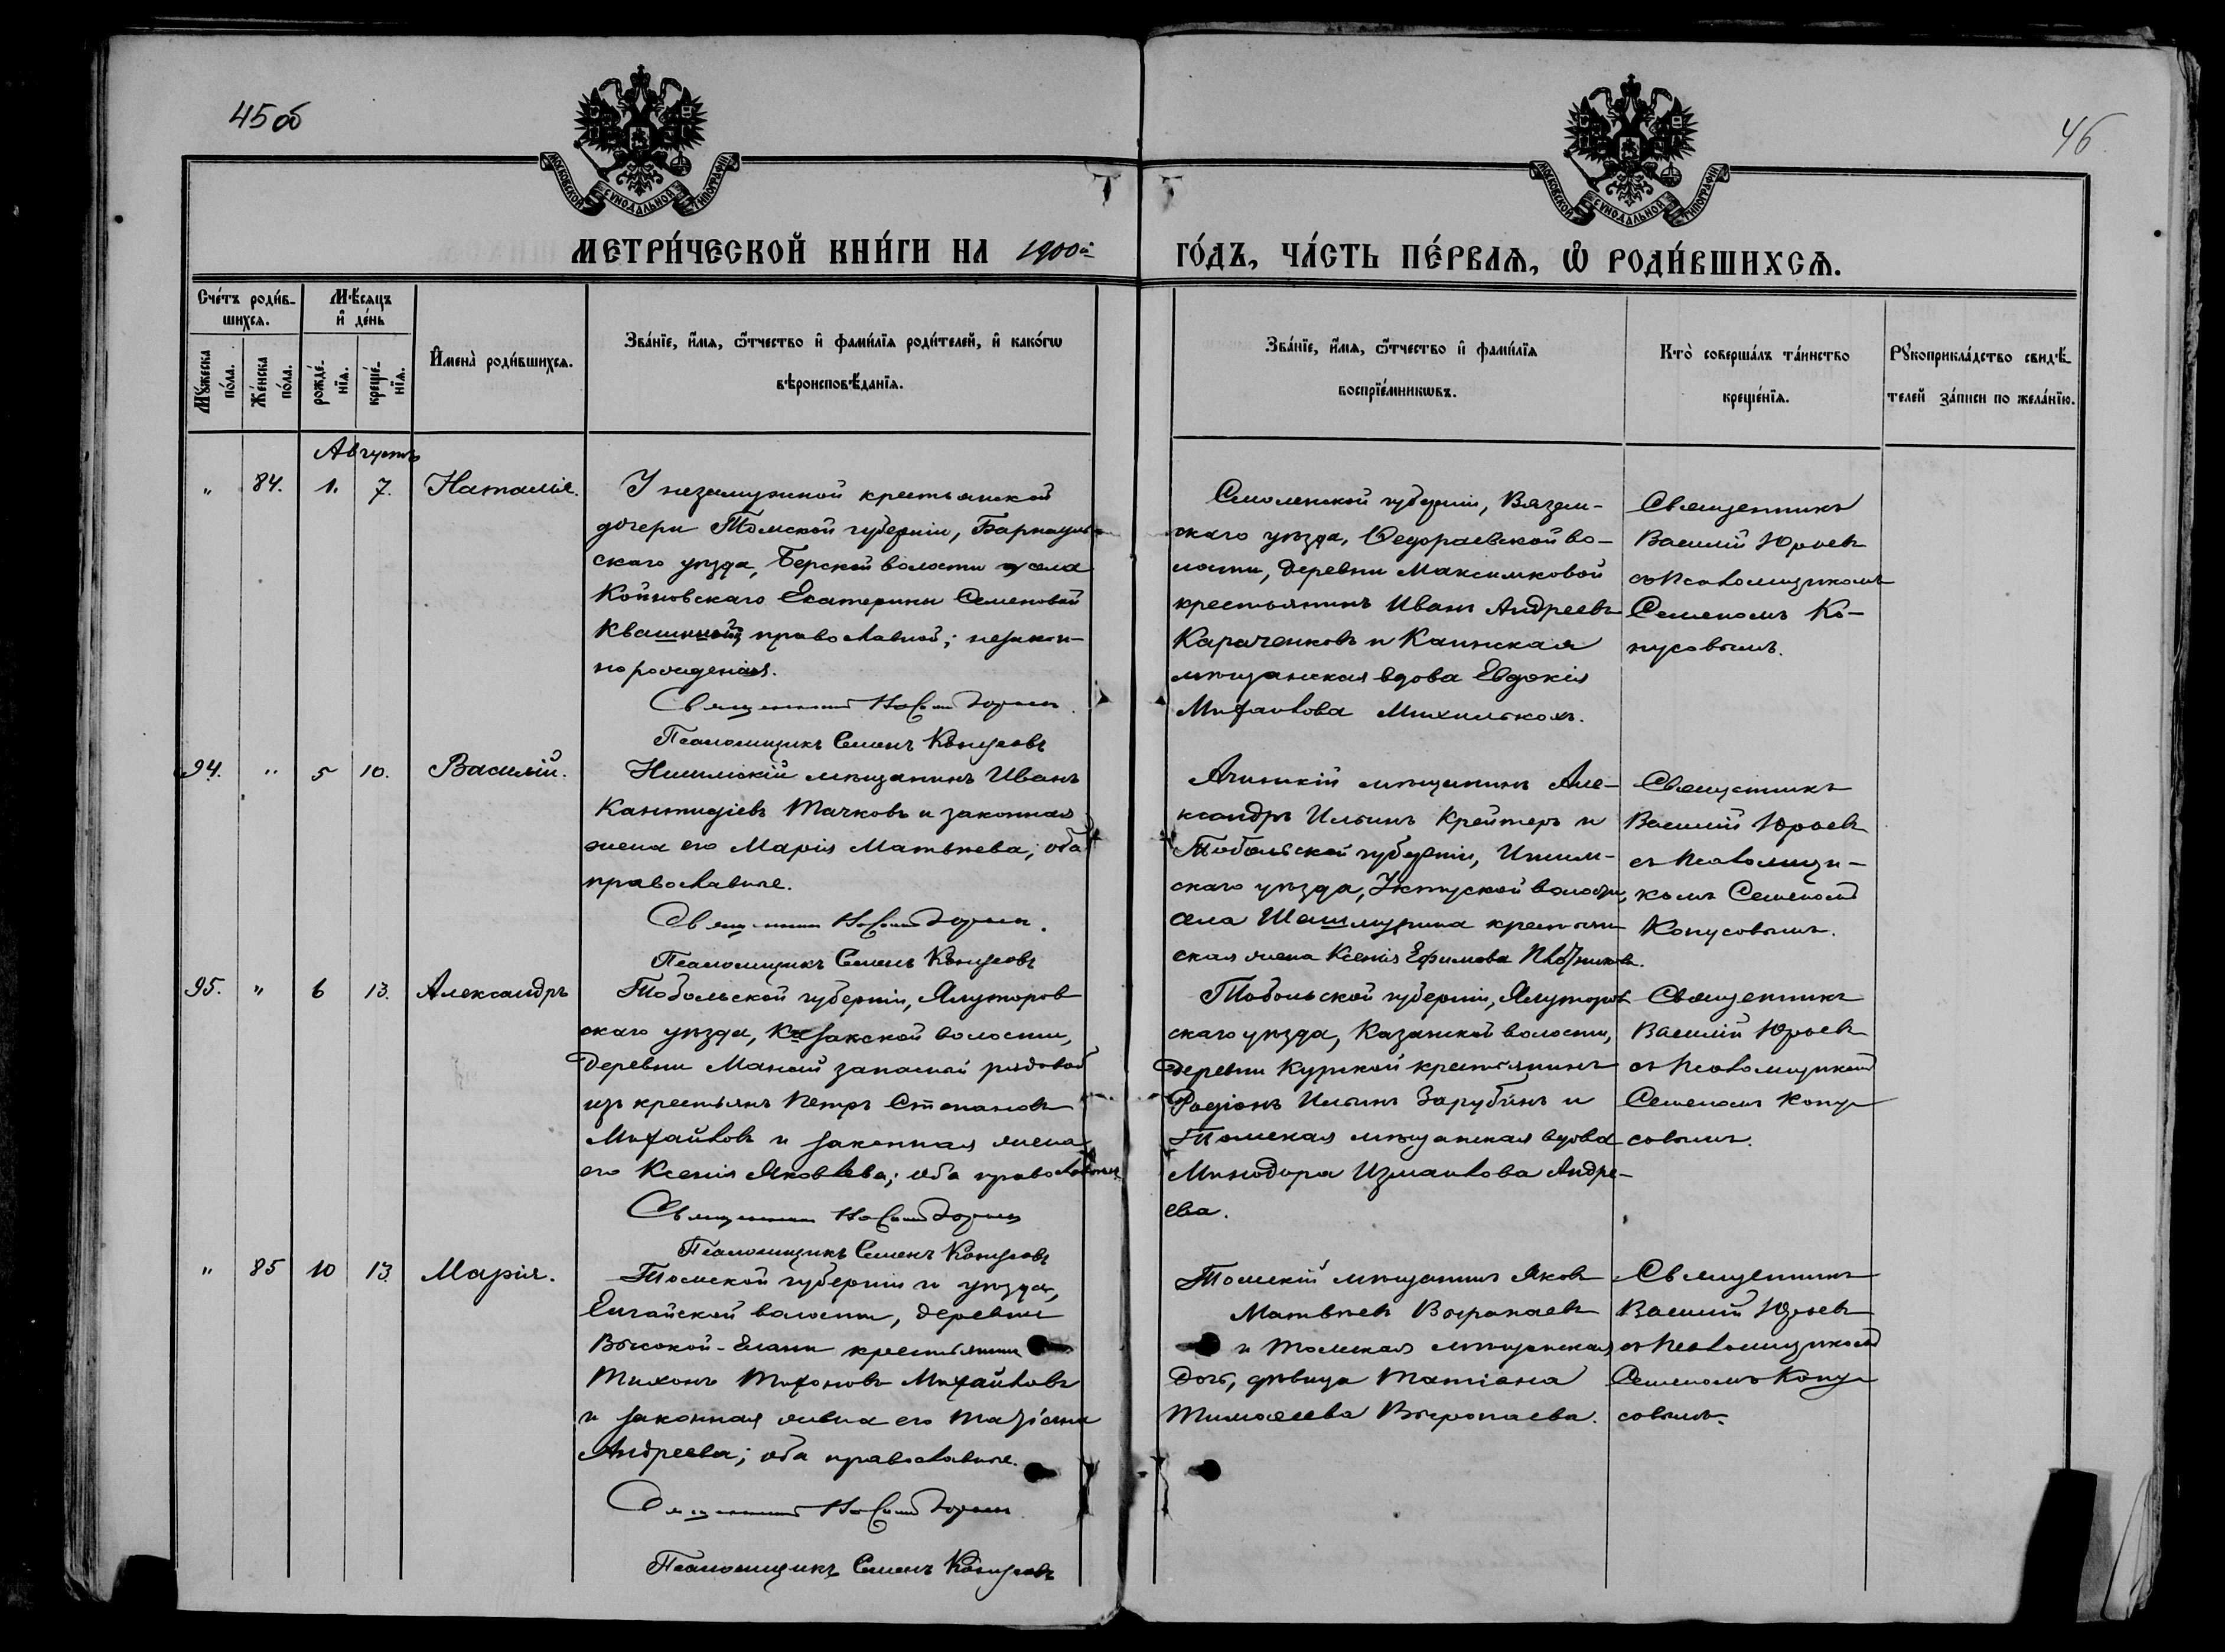 45 об
46
МОСКОВСКОЙ СѴНОДАЛЬНОЙ ТИПОГРАФІИ
МОСКОВСКОЙ СѴНОДАЛЬНОЙ ТИПОГРАФІИ
МЕТРИ́ЧЕСКОЙ КНИ́ГИ НА 1900й
ГО́ДЪ, ЧА́СТЬ ПЕ́РВАѦ, Ѡ҆ РОДИ́ВШИХСѦ.
Сче́тъ роди́в-
шихсѧ.
Мꙋ́жеска
по́ла.
Же́нска
по́ла.
Мѣ́сѧцъ
и҆ де́нь
рожде́-
нїѧ.
креще́-
нїѧ.
И҆мена̀ роди́вшихсѧ.
Зва́нїе, и҆́мѧ, ѻ҆́тчество и҆ фами́лїѧ роди́телей, и҆ како́гѡ
вѣроисповѣ́данїѧ.
Зва́нїе, и҆́мѧ, ѻ҆́тчество и҆ фами́лїѧ
воспрїе́мникѡвъ.
Кто̀ соверша́лъ та́инство
креще́нїѧ.
Рꙋкоприкла́дство свидѣ́-
телей за́писи по жела́нїю.
Августъ
„ 84. 1. 7. Наталія.
У незамужной крестьянской
дочери Томской губерніи, Барнауль-
скаго уѣзда, Берской волости села
Койновскаго Екатерины Семеновой
Квашниной, православной; незакон-
но рожденія.
Священникъ Василій Юрьевъ
Псаломщикъ Семенъ Конусовъ
Смоленской губерніи, Вязем-
скаго уѣзда, Ѳедораевской во-
лости, деревни Максимковой
крестьянинъ Иванъ Андреевъ
Караченковъ и Каинская
мѣщанская вдова Евдокія
Михайлова
Священникъ
Василій Юрьевъ
съ псаломщикомъ
Семеномъ Ко-
нусовымъ.
94. „ 5 10. Василій.
мѣщанинъ Иванъ
Кантидіевъ Тачковъ и законная
жена его Марія Матвѣева; оба
православные.
Священникъ Василій Юрьевъ.
Псаломщикъ Семенъ Конусовъ
Ачинскій мѣщанинъ Але-
ксандръ Ильинъ Крейтеръ и
Тобольской губерніи, Ишим-
скаго уѣзда, Уктуской волости,
села крестьян
ская жена Ксенія Ефимова
Священникъ
Василій Юрьевъ
съ псаломщи-
комъ Семеномъ
Конусовымъ.
95. „ 6 13. Александръ
Тобольской губерніи, Ялуторов
скаго уѣзда, Казакской волости,
деревни запасный рядовой
изъ крестьянъ Петръ Степановъ
Михайловъ и законная жена
его Ксенія Яковлева; оба православные.
Священникъ Василій Юрьевъ
Псаломщикъ Семенъ Конусовъ
Тобольской губерніи, Ялуторов
скаго уѣзда, Казанской волости,
деревни Курской крестьянинъ
Родіонъ Ильинъ Зарубинъ и
Томская мѣщанская вдова
Минодора Измаилова Андре-
ева.
Священникъ
Василій Юрьевъ
съ псаломщикомъ
Семеномъ Кону-
совымъ.
„ 85 10 13. Марія.
Томской губерніи и уѣзда,
Елгайской волости, деревни
Высокой-Елани крестьянинъ
Тихонъ Михайловъ
и законная жена его Татіана
Андреева; оба православные.
Священникъ Василій Юрьевъ
Псаломщикъ Семенъ Конусовъ
Томскій мѣщанинъ Яковъ
Матвѣевъ Воропаевъ
и Томская мѣщанская
дочь, дѣвица Татіана
Тимоѳеева Воропаева.
Священникъ
Василій Юрьевъ
съ псаломщикомъ
Семеномъ Кону-
совымъ.